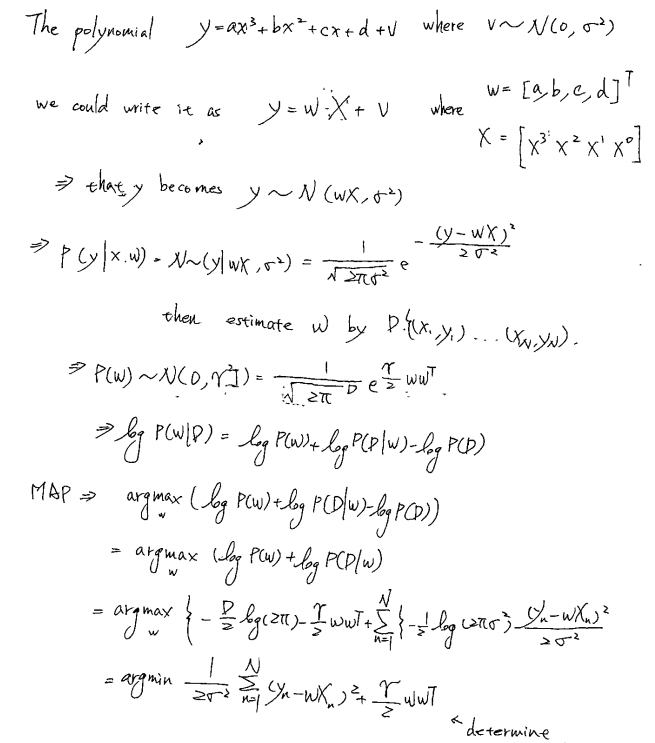 The polynomial y=ax³+bx²+cx+d+v where v~N(0,σ²)
we could write it as y=w·X+v where w=[a,b,c,d]ᵀ
X=[x³ x² x¹ x⁰]
⇒ that y becomes y~N(wX,σ²)
⇒ P(y|x.w) = N~(y|wX,σ²) = 1/√(2πσ²) e^(-(y-wX)²/2σ²)
then estimate w by D{(x₁,y₁)...(x_N,y_N).
⇒ P(w)~N(0,γ²I) = 1/√(2π)^D e^(γ/2 wwᵀ)
⇒ log P(w|D) = log P(w)+log P(D|w)-log P(D)
MAP ⇒ argmax_w (log P(w)+log P(D|w)-log P(D))
= argmax_w (log P(w)+log P(D|w)
= argmax_w {-D/2 log(2π)-γ/2 wwᵀ+∑_{n=1}^N {-1/2 log(2πσ²)-(y_n-wX_n)²/2σ²
= argmin 1/2σ² ∑_{n=1}^N (y_n-wX_n)²+γ/2 wwᵀ
determine